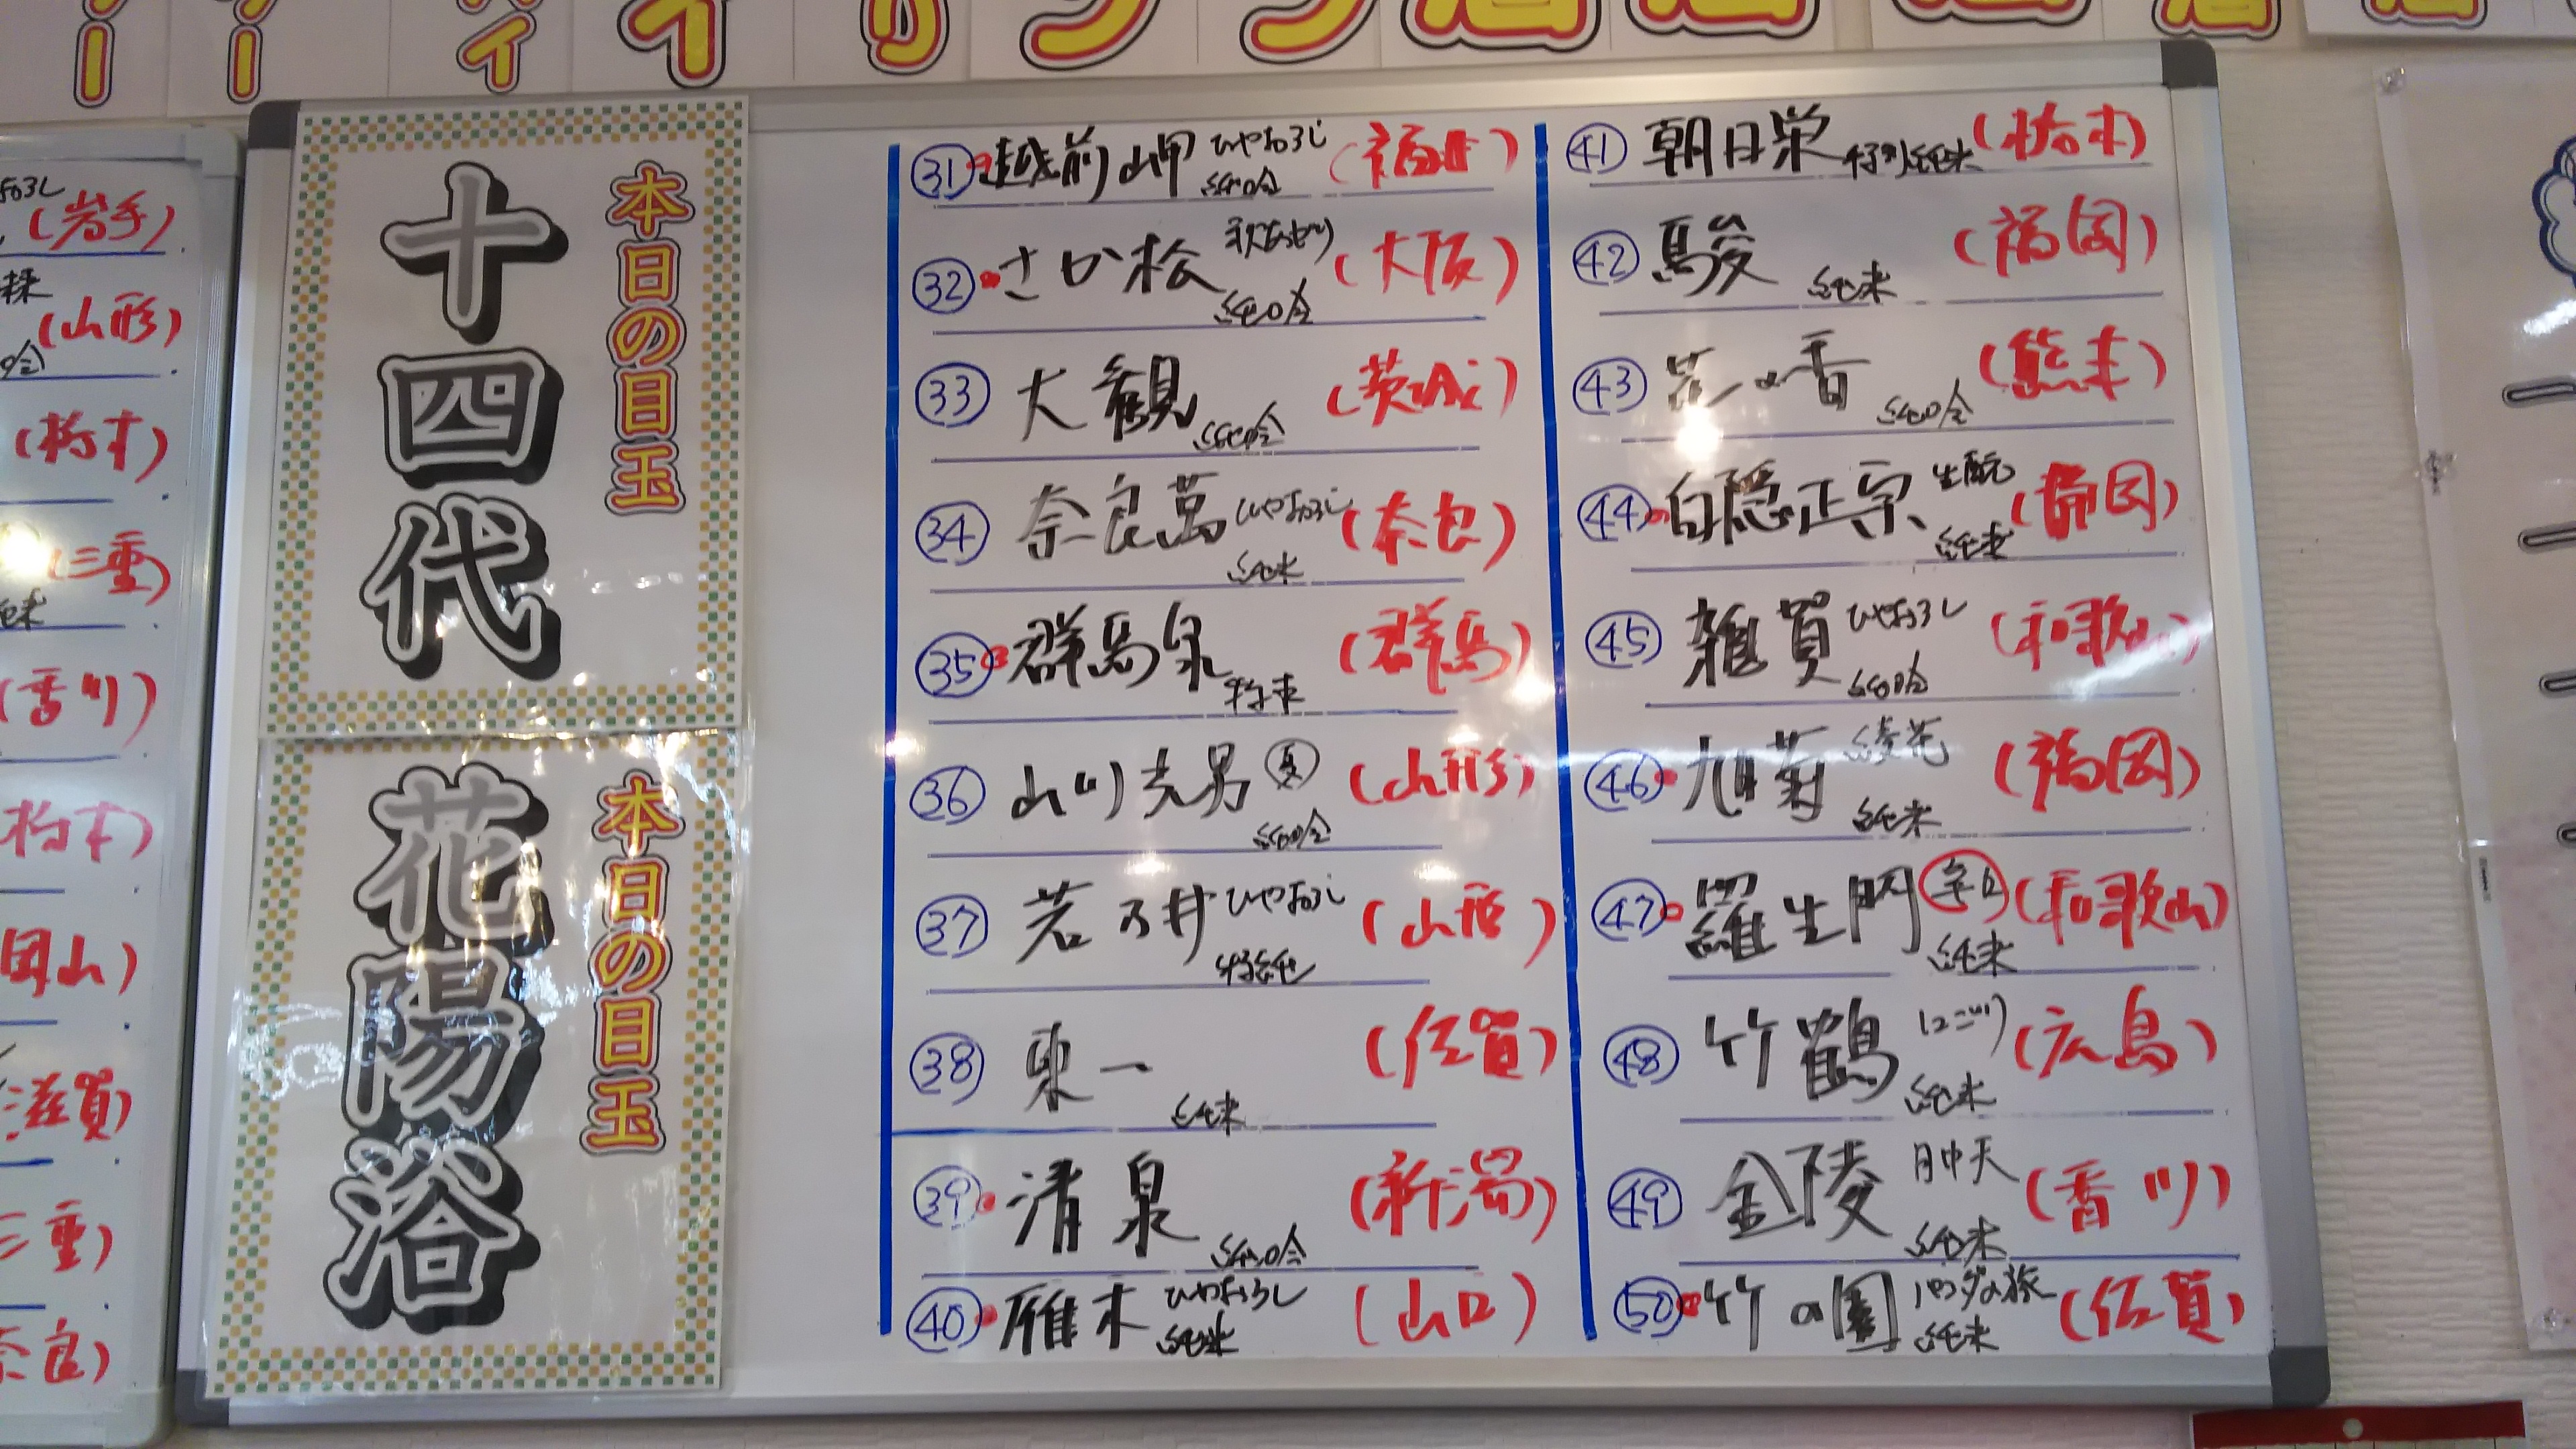 本日の目玉
十四代
本日の目玉
花陽浴
㉛ 越前岬 ひやおろし 純吟 (福井)
㉜ さか松 秋あがり 純吟 (大阪)
㉝ 大観 純吟 (茨城)
㉞ 奈良萬 ひやおろし 純米 (奈良)
㉟ 群馬泉 (群馬)
㊱ 山川光男 夏 純吟 (山形)
㊲ 若乃井 ひやおろし 特純 (山形)
㊳ 東一 純米 (佐賀)
㊴ 清泉 純吟 (新潟)
㊵ 雁木 ひやおろし 純米 (山口)
㊶ 朝日栄 特別純米 (栃木)
㊷ 駿 純米 (福岡)
㊸ 花の香 純吟 (熊本)
㊹ 白隠正宗 生酛 純米 (静岡)
㊺ 雑賀 ひやおろし 純吟 (和歌山)
㊻ 旭菊 綾花 純米 (福岡)
㊼ 羅生門 辛口 純米 (和歌山)
㊽ 竹鶴 にごり 純米 (広島)
㊾ 金陵 月中天 純米 (香川)
㊿ 竹の園 パンダの旅 純米 (佐賀)
(岩手)
(山形)
(栃木)
(三重)
(香川)
栃木)
岡山)
滋賀)
三重)
奈良)